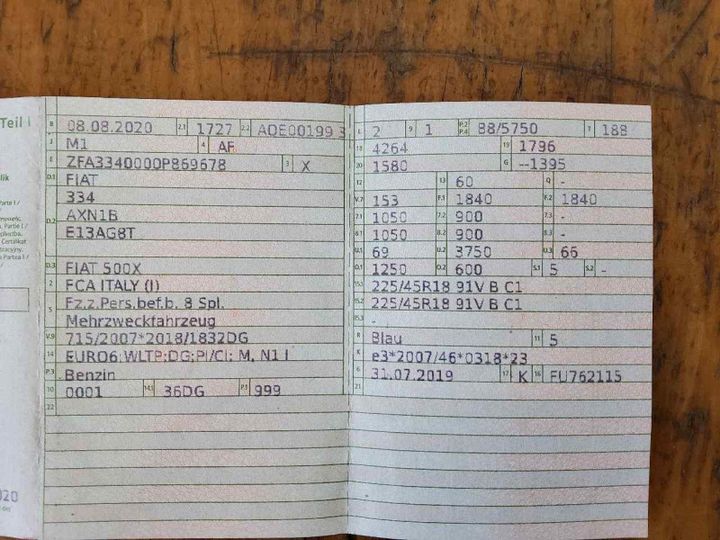 Teil I
B 08.08.2020 2.1 1727 2.2 ADE00199 3
J M1 4 AF
E ZFA3340000P869678 3 X
D.1 FIAT
334
D.2 AXN1B
E13AG8T
D.3 FIAT 500X
2 FCA ITALY (I)
5 Fz.z.Pers.bef.b. 8 Spl.
Mehrzweckfahrzeug
V.9 715/2007*2018/1832DG
14 EURO6;WLTP;DG;PI/CI; M, N1 I
P.3 Benzin
10 0001 14.1 36DG P.1 999
22
L 2 9 1 P.2 P.4 88/5750 T 188
18 4264 19 1796
20 1580 G --1395
12 - 13 60 Q -
V.7 153 F.1 1840 F.2 1840
7.1 1050 7.2 900 7.3 -
8.1 1050 8.2 900 8.3 -
U.1 69 U.2 3750 U.3 66
O.1 1250 O.2 600 S.1 5 S.2 -
15.1 225/45R18 91V B C1
15.2 225/45R18 91V B C1
15.3 -
R Blau 11 5
K e3*2007/46*0318*23
6 31.07.2019 17 K 16 FU762115
21